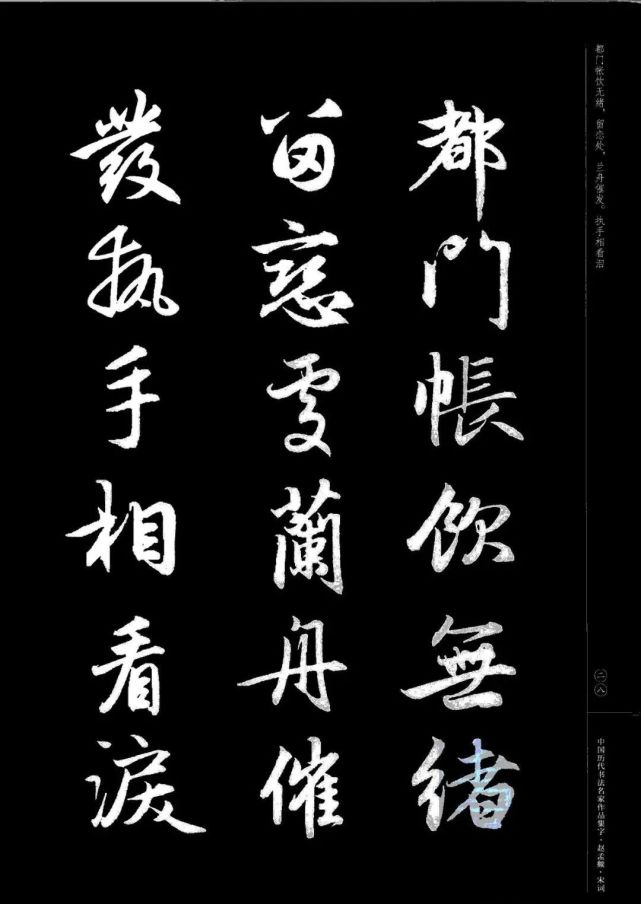 都门帐饮无绪，留恋处，兰舟催发。执手相看泪
都門帳飲無緒
留戀處蘭舟催
發執手相看淚
二八
中国历代书法名家作品集字·赵孟頫·宋词